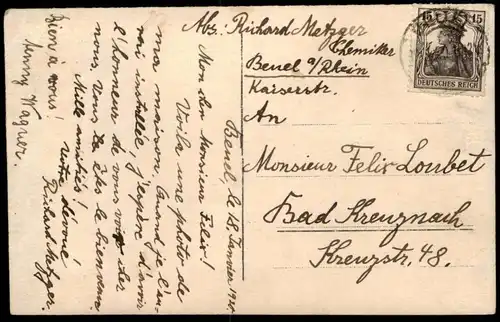 Abs: Richard Metzger
Chemiker
Beuel a/Rhein
Kaiserstr.
An
Monsieur Felix Loubet
Bad Kreuznach
Kreuzstr. 48.
15 15
DEUTSCHES REICH
Beuel, le 18 Janvier 19
Mon cher Monsieur Felix!
Voila une photo de
ma maison. Quand je l'au-
rai installée, j'espère d'avoir
l'honneur de vous voir chez
nous. Vous êtes le bienvenu.
Mille amitiés!
Votre dévoué
Richard Metzger.
Bien à vous!
Wagner.